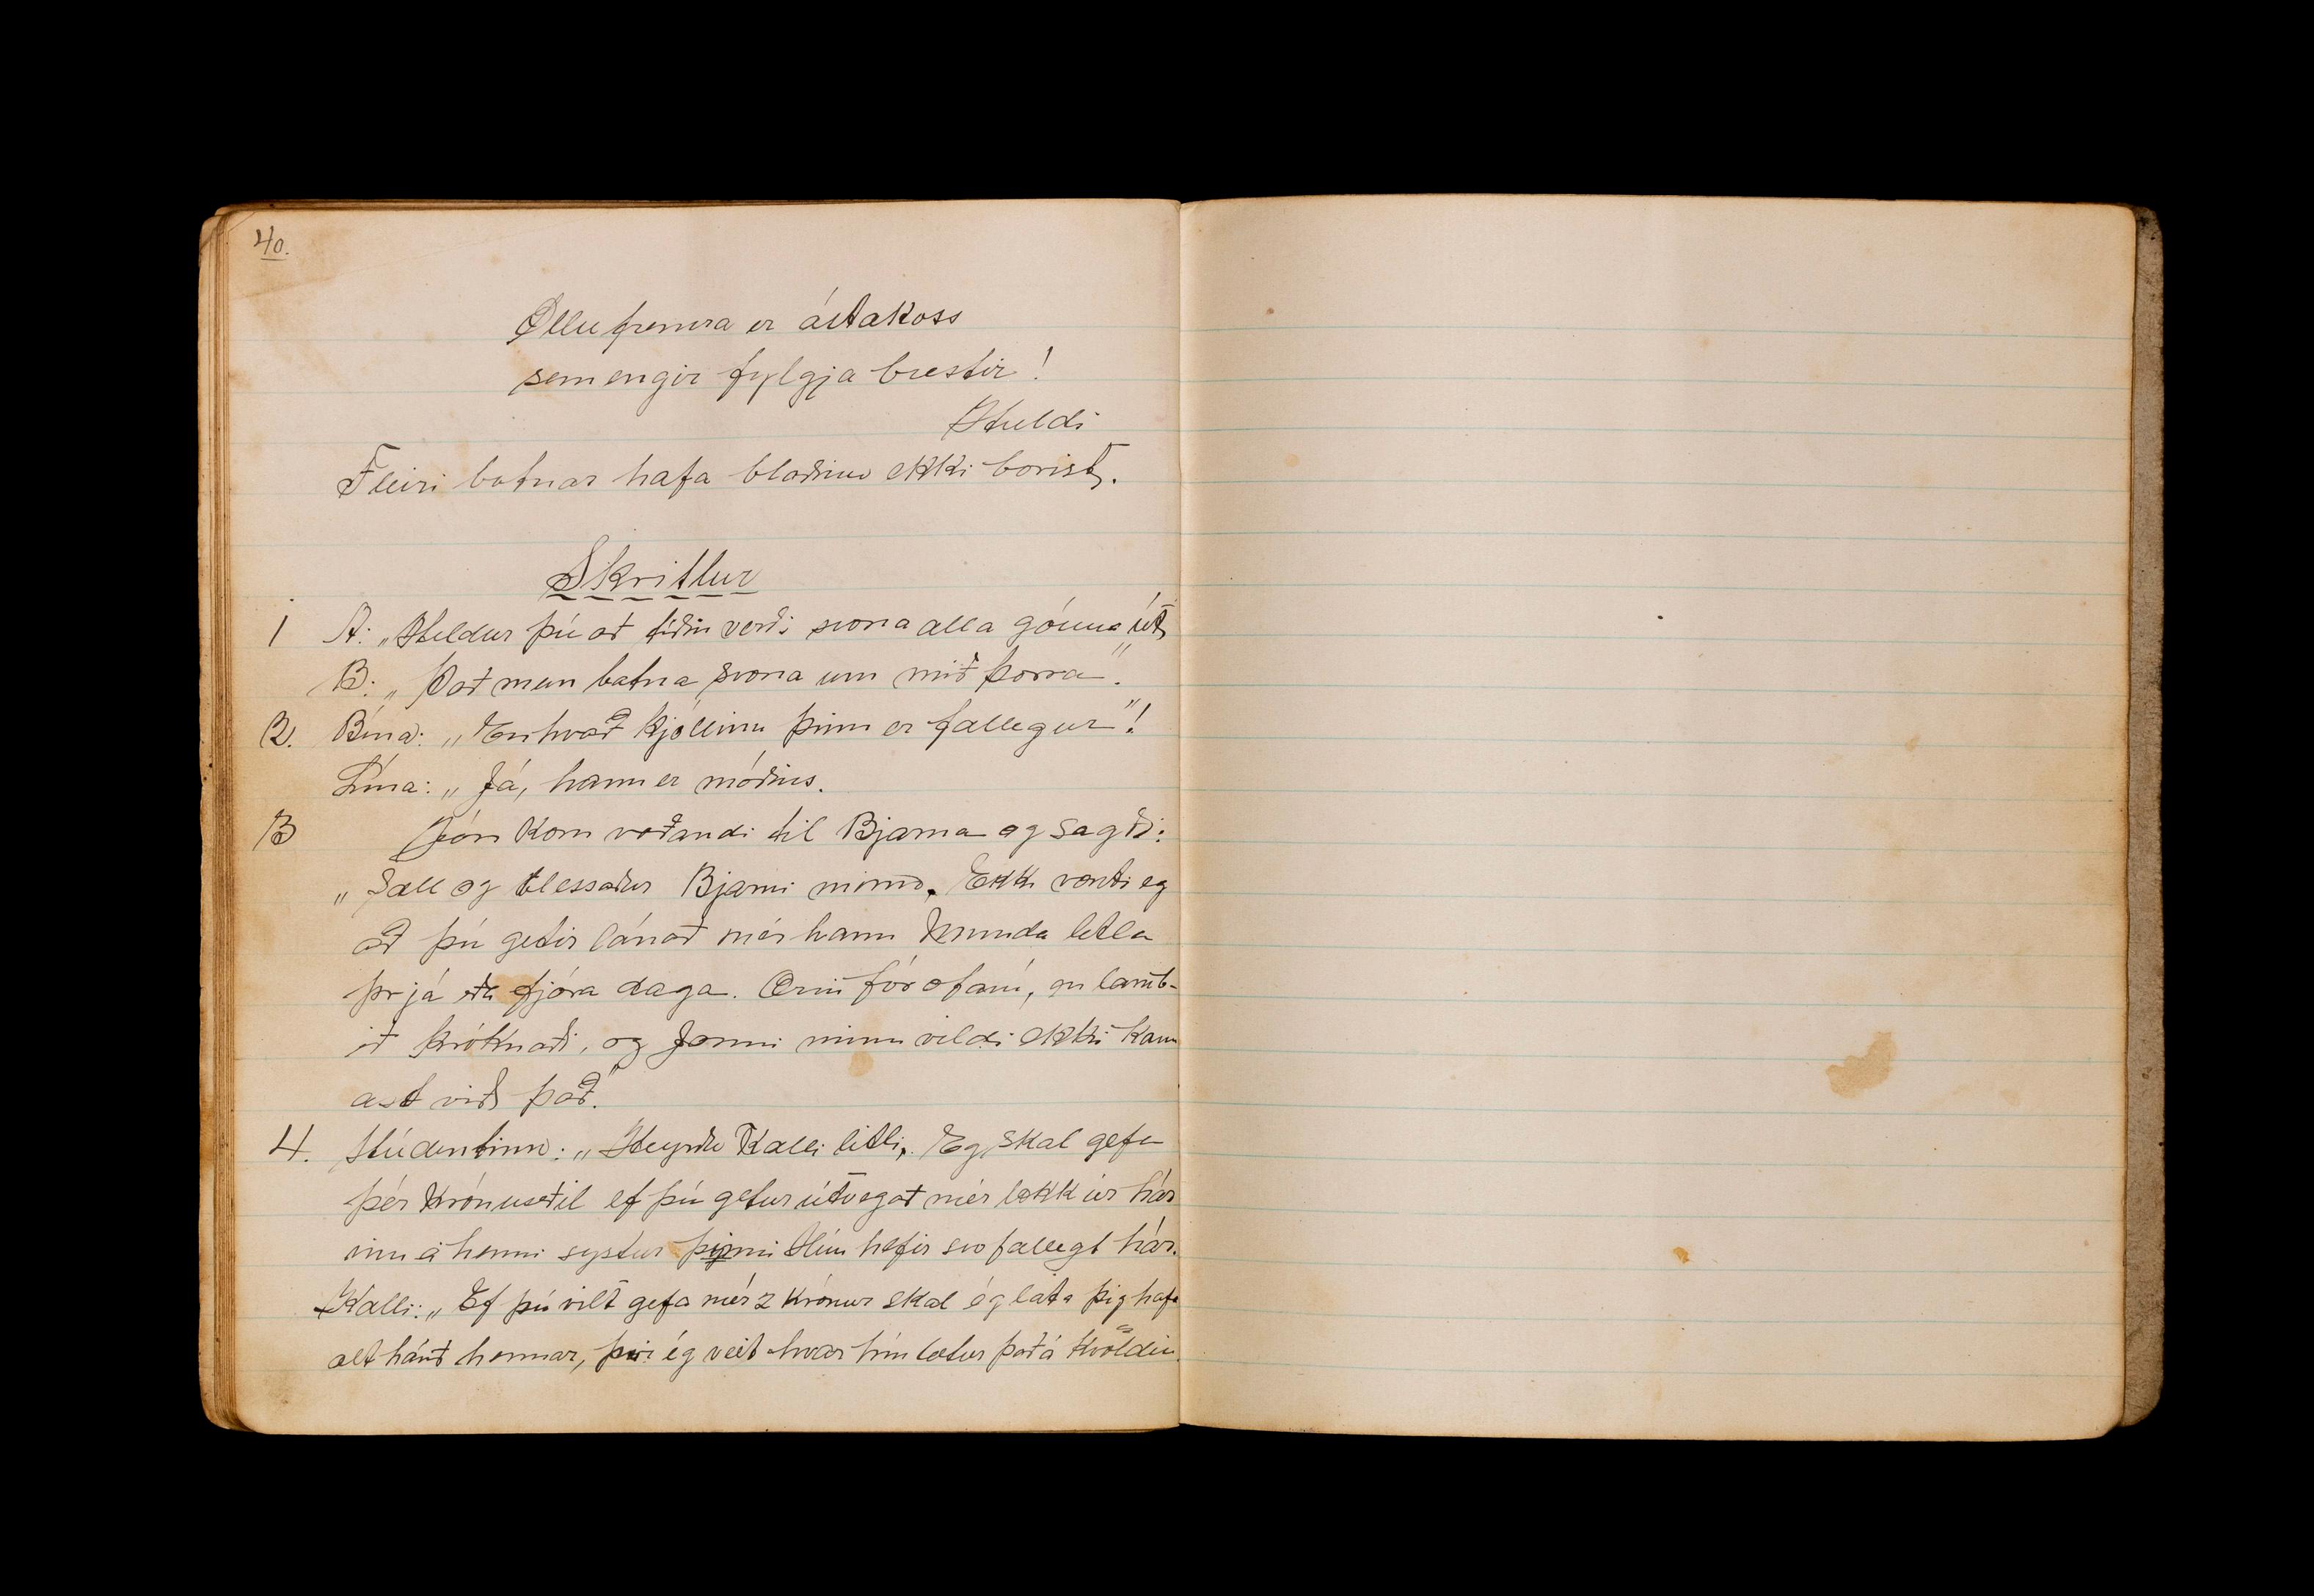 40.
Öllu fremra er ástakoss
sem engir fylgja brestir!
Huldi
Fleiri botnar hafa blaðinu ekki borist.
Skrítlur
1 A: „Heldur þú að tíðin verði svona alla góuna út
B: „Það mun batna svona um mið þorra".
2. Bína: „En hvað kjóllinn þinn er fallegur"!
Lína: „Já, hann er móðins.
3 Jón kom vaðandi til Bjarna og sagði:
„Sæll og blessaður Bjarni minn. Ekki vænti eg
að þú getir lánað mér hann Munda litla
þrjá eða fjóra daga. Ærin fór ofaní, en lamb-
ið króknaði, og Jonni minn vildi ekki kann
ast við það."
4. Stúdentinn: „Heyrðu Kalli litli. Eg skal gefa
þér krónuseðil ef þú getur útvegað mér lokk úr hár
inu á henni systur þinni Hún hefir svo fallegt hár.
Kalli: „Ef þú vilt gefa mér 2 krónur skal ég láta þig hafa
alt hárið hennar, því ég veit hvar hún lætur það á kvöldin